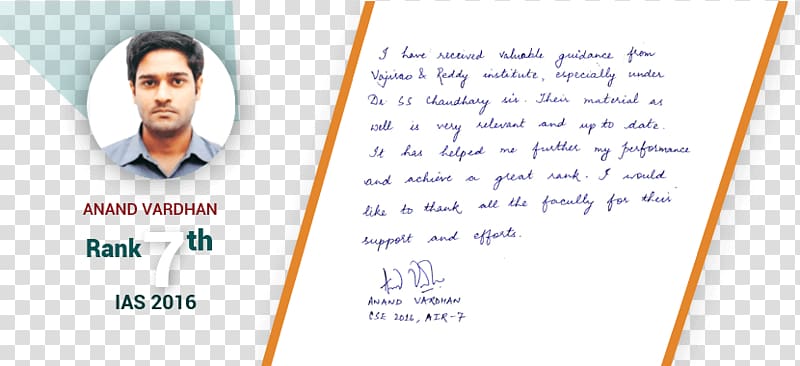 ANAND VARDHAN
Rank 7th
IAS 2016
I have received valuable guidance from
Vajirao & Reddy institute, especially under
Dr SS Chaudhary sir. Their material as
well is very relevant and up to date.
It has helped me further my performance
and achieve a great rank. I would
like to thank all the faculty for their
support and efforts.
ANAND VARDHAN
CSE 2016, AIR-7